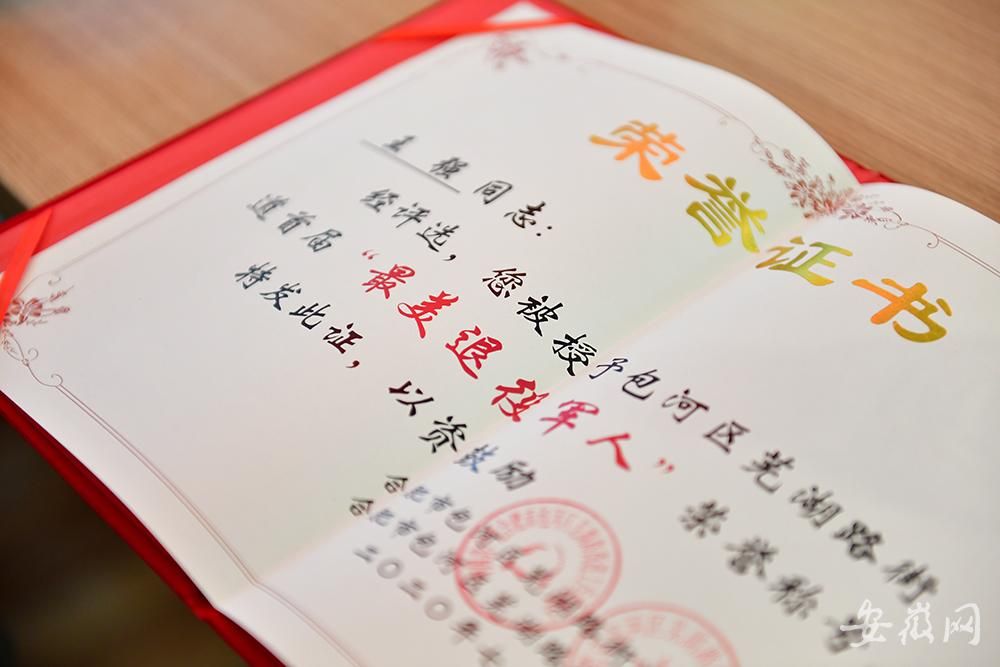 荣誉证书
强同志：
经评选，您被授予包河区芜湖路街
道首届“最美退役军人”荣誉称号
特发此证，以资鼓励
合肥市包河区芜湖路街
合肥市包河区芜湖路
二〇二〇年七
安徽网